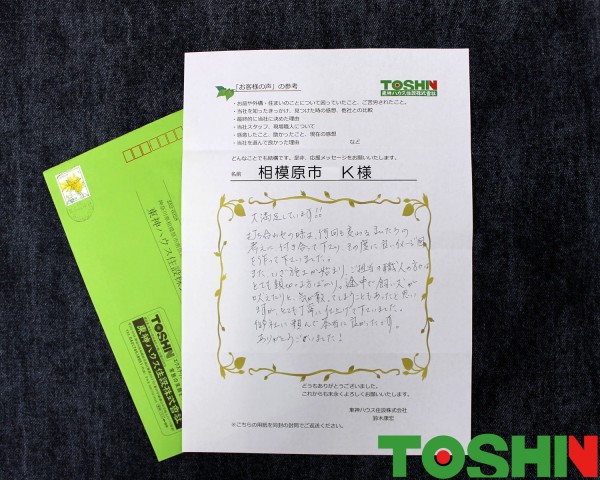 「お客様の声」の参考
TOSHIN
東神ハウス住設株式会社
・お庭や外構・住まいのことについて困っていたこと、ご苦労されたこと。
・当社を知ったきっかけ、見つけた時の感想、他社との比較
・最終的に当社に決めた理由
・当社スタッフ、現場職人について
・感激したこと、助かったこと、現在の感想
・当社を選んで良かった理由 など
どんなことでも結構です。是非、応援メッセージをお願いいたします。
名前 相模原市 K様
大満足しています!!
打ち合わせの時は、何回も変わる私たちの
考えに付き合って下さり、その度に良いイメージ図
を作って下さいました。
また、いざ施工が始まり、ご担当の職人の方々は
とても親切な方ばかり。途中で飼い犬が
吠えたりと、気が散ってしまうこともあったと思い
ますが、とても丁寧に仕上げて下さいました。
御社に頼んで本当に良かったです。
ありがとうございました!
どうもありがとうございました。
これからも末永くよろしくお願いいたします。
東神ハウス住設株式会社
鈴木康宏
※こちらの用紙を同封の封筒でご返送ください。
東神ハウス住設株
TOSHIN
東神ハウス住設株式会社
TOSHIN